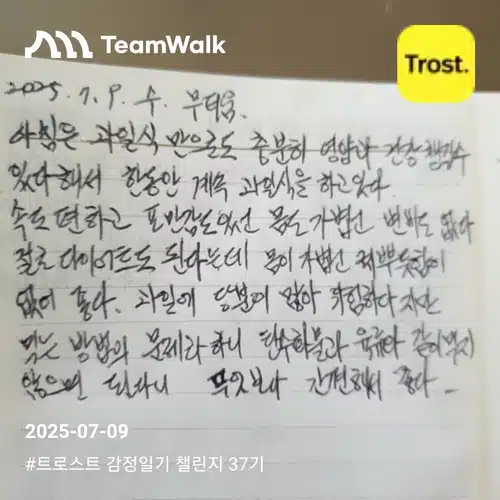 TeamWalk
Trost.
2025. 7. 9. 수. 무더움.
아침은 과일식 만으로도 충분히 영양과 건강 챙길수
있다 해서 한동안 계속 과일식을 하고 있다.
속도 편하고 포만감도 있신 몸도 가볍신 변비도 없다
절로 다이어트도 된다는데 몸이 가볍신 찌뿌듯함이
없어 좋다. 과일에 당분이 많아 위험하다 지만
먹는 방법의 문제라 하니 탄수화물과 육류와 같이 먹지
않으면 된다니 무엇보다 간편해서 좋다
2025-07-09
#트로스트 감정일기 챌린지 37기